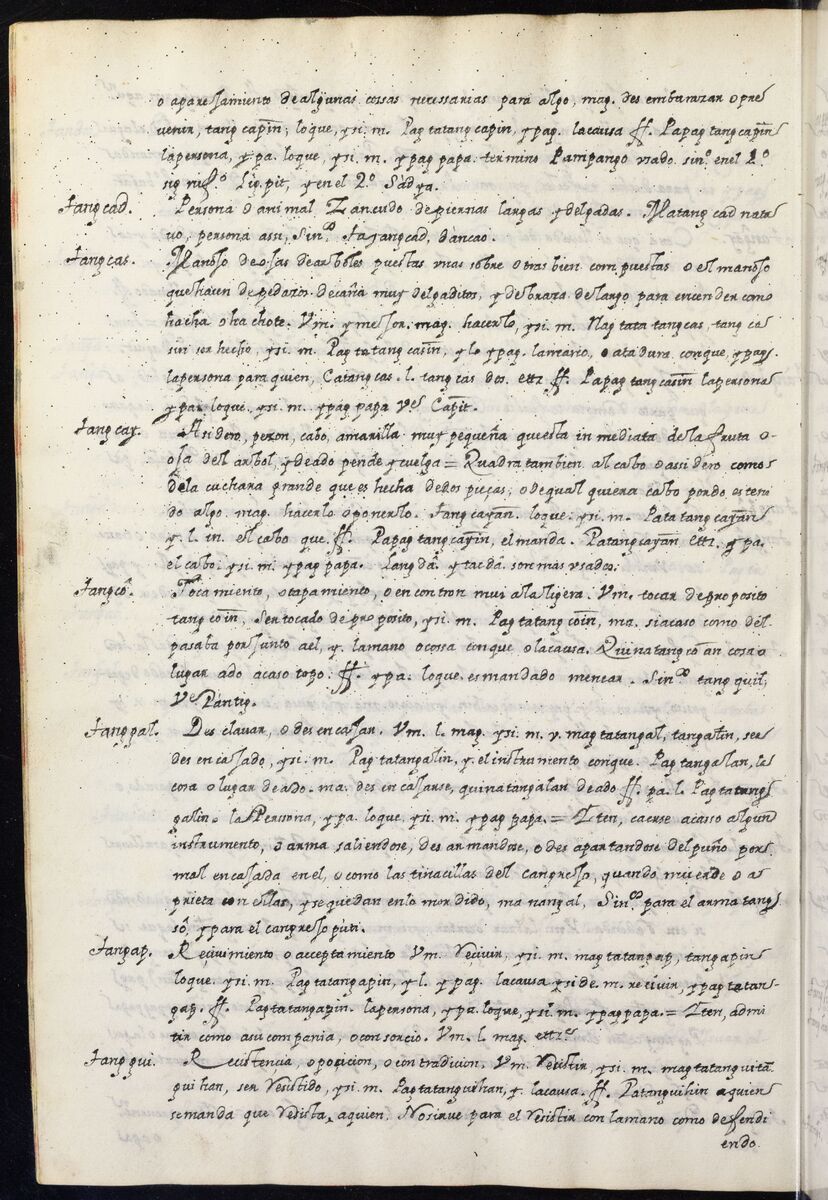 o aparejamiento de algunas cossas necessarias para algo, mag. des embarazar o pre
venir, tang capin; loque, ysi. m. Pag tatang capin, ypag. lacausa ff. Papag tang capin
lapersona, ypa. loque, ysi. m. ypag papa. termino Pampango vsado sin.o en el 2.o
sig nif.o Lig pit, y en el 2.o Sadya.
Tang cad. Persona o animal Zancudo de piernas largas y delgadas. Matang cad nata
uo, persona assi, Sin.o Tayangcad, dancao.
Tang cas. Manojo de ojas de arboles puestas vnas sobre otras bien compuestas o el manojo
que hacen de pedazos de caña muy delgaditos, y de braza de largo para encender como
hacha o hachote. Vm. y mejor. mag. hacerlo, ysi. m. Nag tata tangcas, tang ca
sin ser hecho, ysi. m. Pag tatang casin, y lo ypag. lamano, o atadura con que, ypag.
lapersona para quien, Catang cas. l. tang cas dos. ett.a ff. Papag tang casin lapersona
ypa. loque, ysi. m. ypag papa V.e Capit.
Tang cay. Asidero, peson, cabo, amarilla muy pequeña que esta in mediata de la fruta o
oja del arbol, y de ado pende y cuelga = Quadra tambien al cabo o assidero como
de la cuchara grande que es hecha de dos pieças, o de qual quiera cabo por do es teni
do algo, mag. hacerlo o ponerlo. Tang cayan. loque. ysi. m. Pata tang cayan
y. l. in. el cabo que. ff. Papag tang cayin, el manda. Patang cayan ett.a y pa.
el cabo. ysi. m. ypag papa. Tangda. y tacda. son mas vsados.
Tang co. Tocamiento, o tapamiento, o encontron mui ala ligera. Vm. tocar de proposito
tang coin, Ser tocado de proposito, ysi. m. Pag tatang coin, ma. si acaso como del
pasaba por junto a el, y. lamano o cossa con que o lacausa. Quinatang co an cosa o
lugar ado acaso topo. ff. ypa. loque. es mandado menear. Sin.o tang quil,
V.e Pantig.
Tang pal. Des clauar, o des encajar. Vm. l. mag. ysi. m. v. mag tatangal, tangalin, ser
des encajado, ysi. m. Pag tatangalin, y. el instrumento con que. Pag tangalan, la
cosa o lugar de ado. ma. des encajarse, quinatangalan de ado ff. pa. l. Pag tatang
galin. la Persona, ypa. loque, ysi. m. ypag papa. = Iten, caerse acasso algun
instrumento, o arma saliendose, des armandose, o des apartandose del puño por
mal encajada en el, o como las tinacillas del cangrejo, quando muerde o a
prieta con ellas, y se quedan en lo mordido, ma nangal, Sin.o para el arma tang
so, y para el cangrejo puti.
Tang ap. Recivimiento o acceptamiento Vm. recivir, ysi. m. mag tatangap, tangapin
loque, ysi. m. Pag tatangapin, y l. ypag. lacausa ysi de. m. recivir, ypag tatan-
gap. ff. Pag tatangapin. lapersona, ypa. loque, ysi. m. ypag papa. = Iten, admi
tir como a su compania, o consorcio. Vm. l. mag. ett.a
Tang qui. Recistencia, oposicion, o contradicion, Vm. resistir, ysi. m. mag tatang quitan
qui han, ser resistido, ysi. m. Pag tatanguihan, y. lacausa. ff. Patanguihin a quien
se manda que resista, a quien. No sirue para el resistir con lamano como defendi
endo